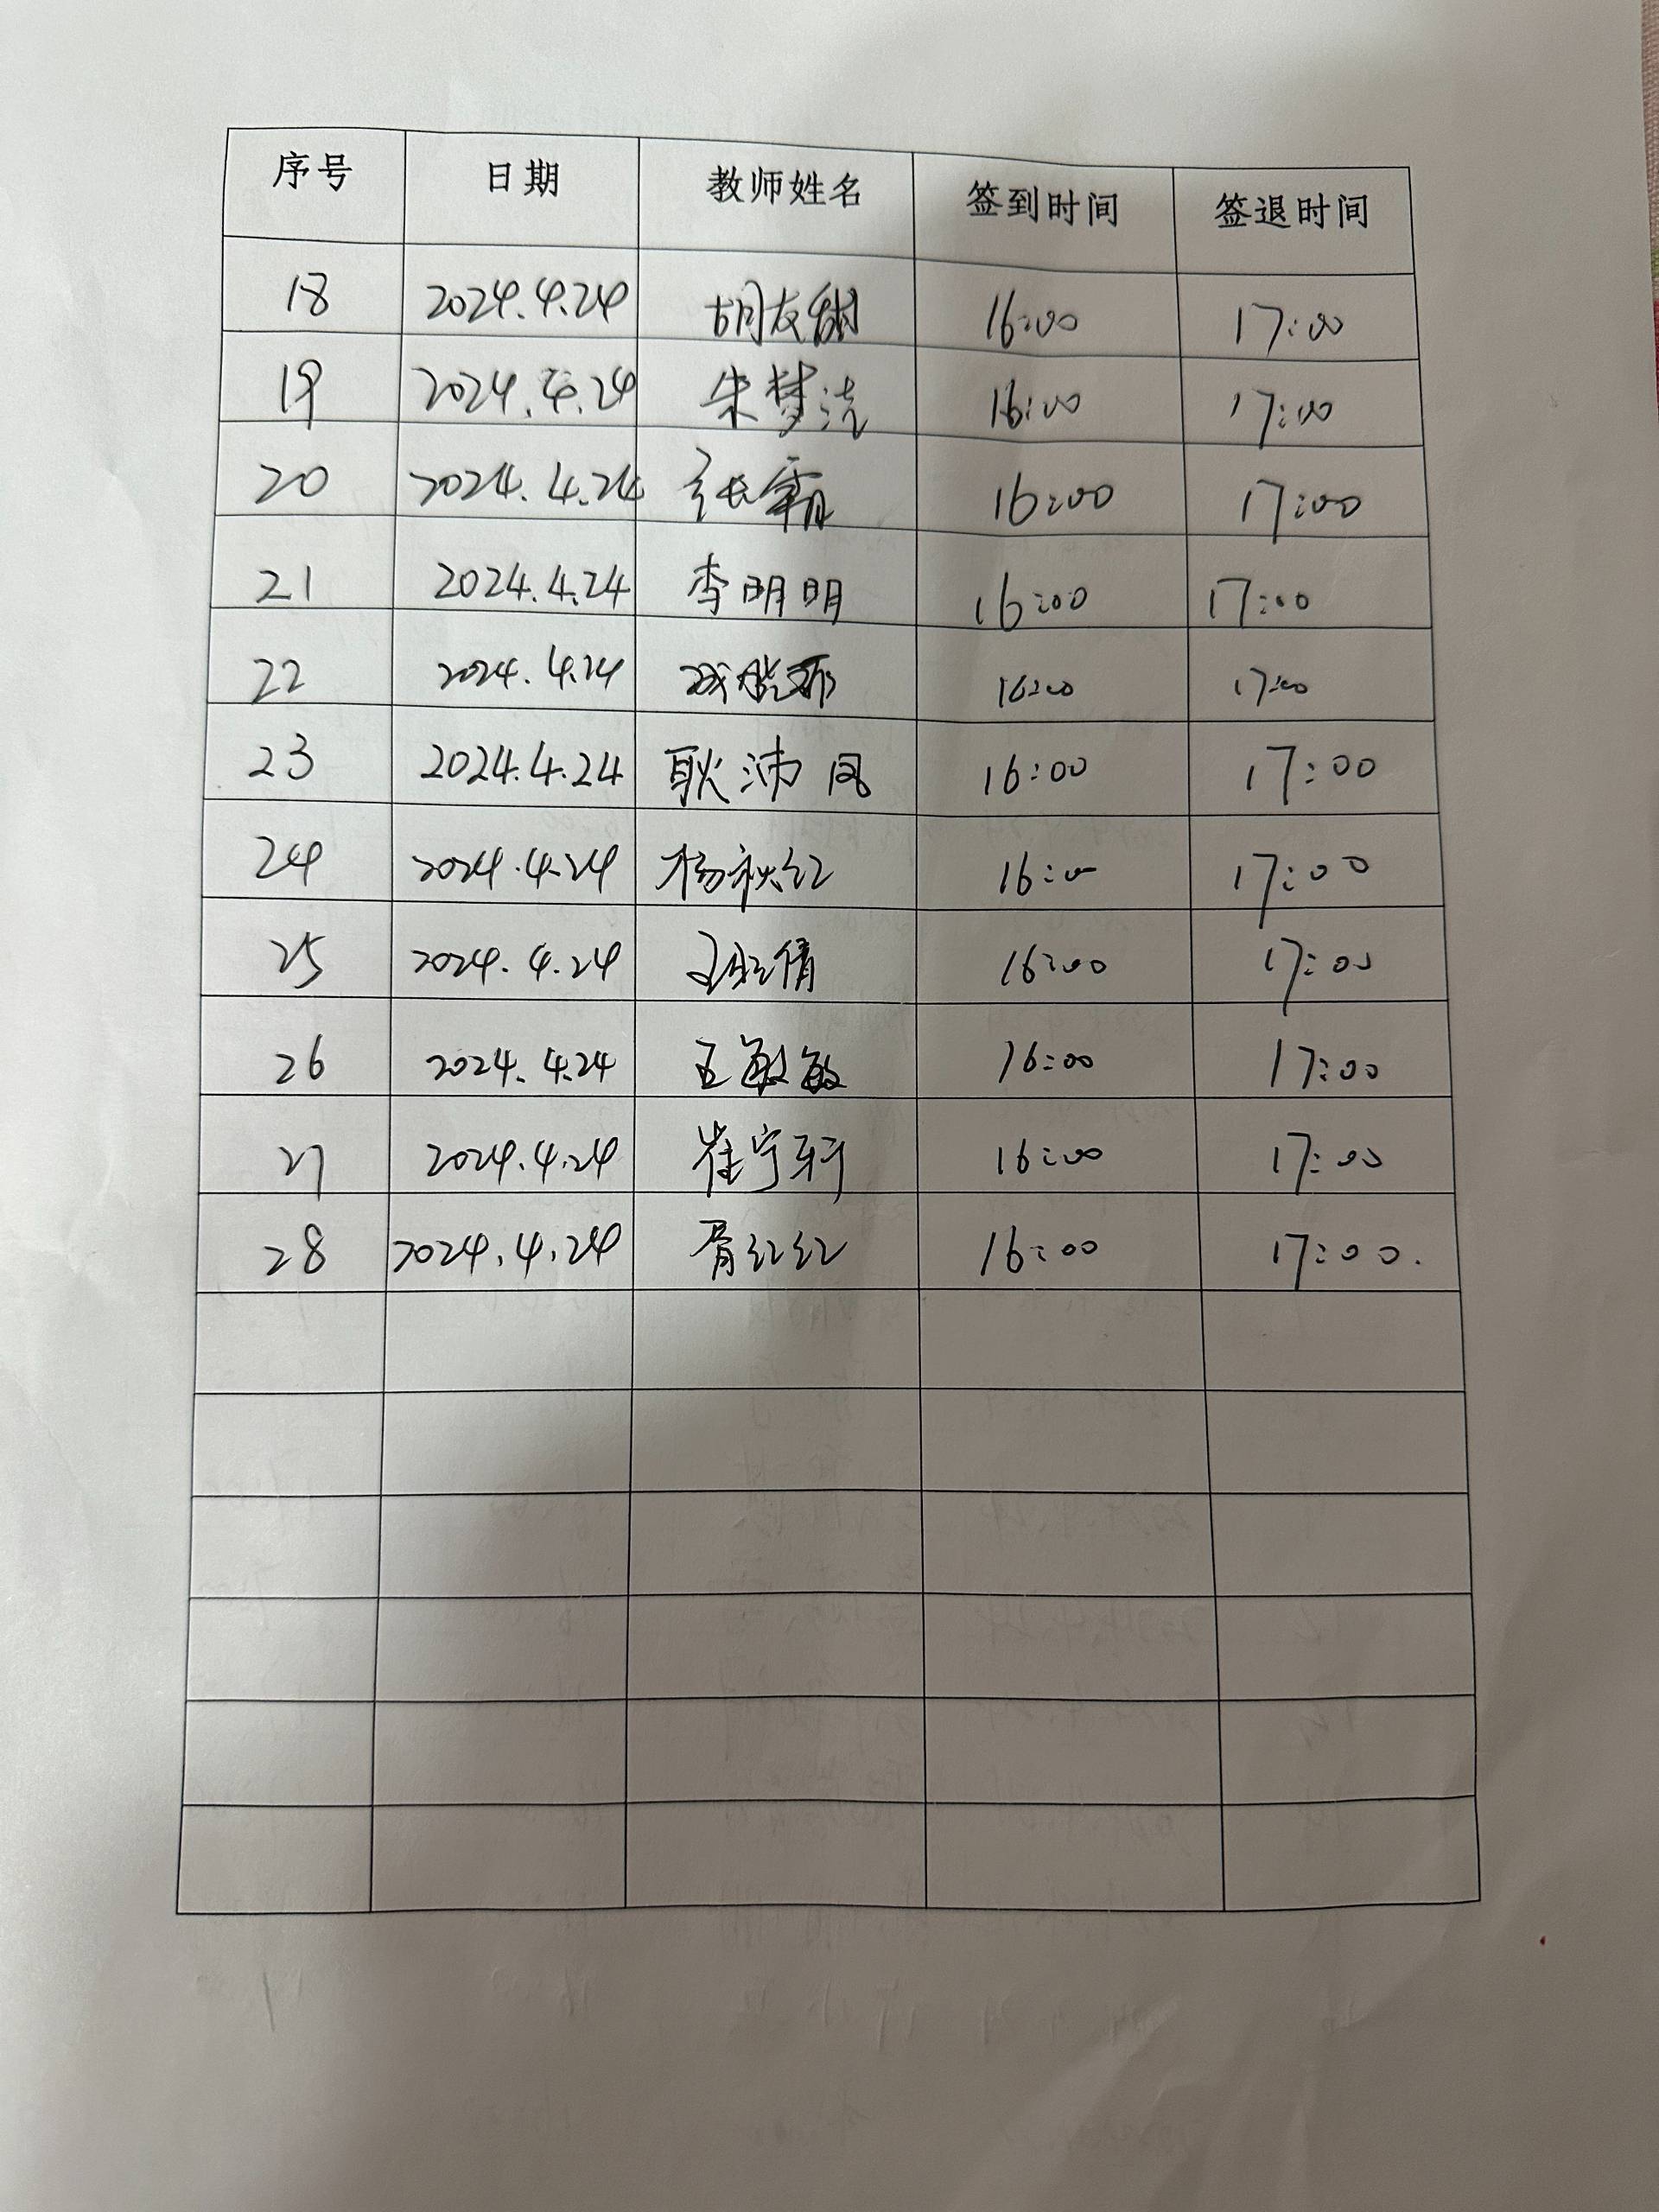 序号 日期 教师姓名 签到时间 签退时间
18 2024.4.24 胡友 16:00 17:00
19 2024.4.24 朱梦洁 16:00 17:00
20 2024.4.24 张霜 16:00 17:00
21 2024.4.24 李明明 16:00 17:00
22 2024.4.24 16:00 17:00
23 2024.4.24 耿沛凤 16:00 17:00
24 2024.4.24 杨秋红 16:00 17:00
25 2024.4.24 倩 16:00 17:00
26 2024.4.24 王敏敏 16:00 17:00
27 2024.4.24 崔宁轩 16:00 17:00
28 2024.4.24 胥红红 16:00 17:00.